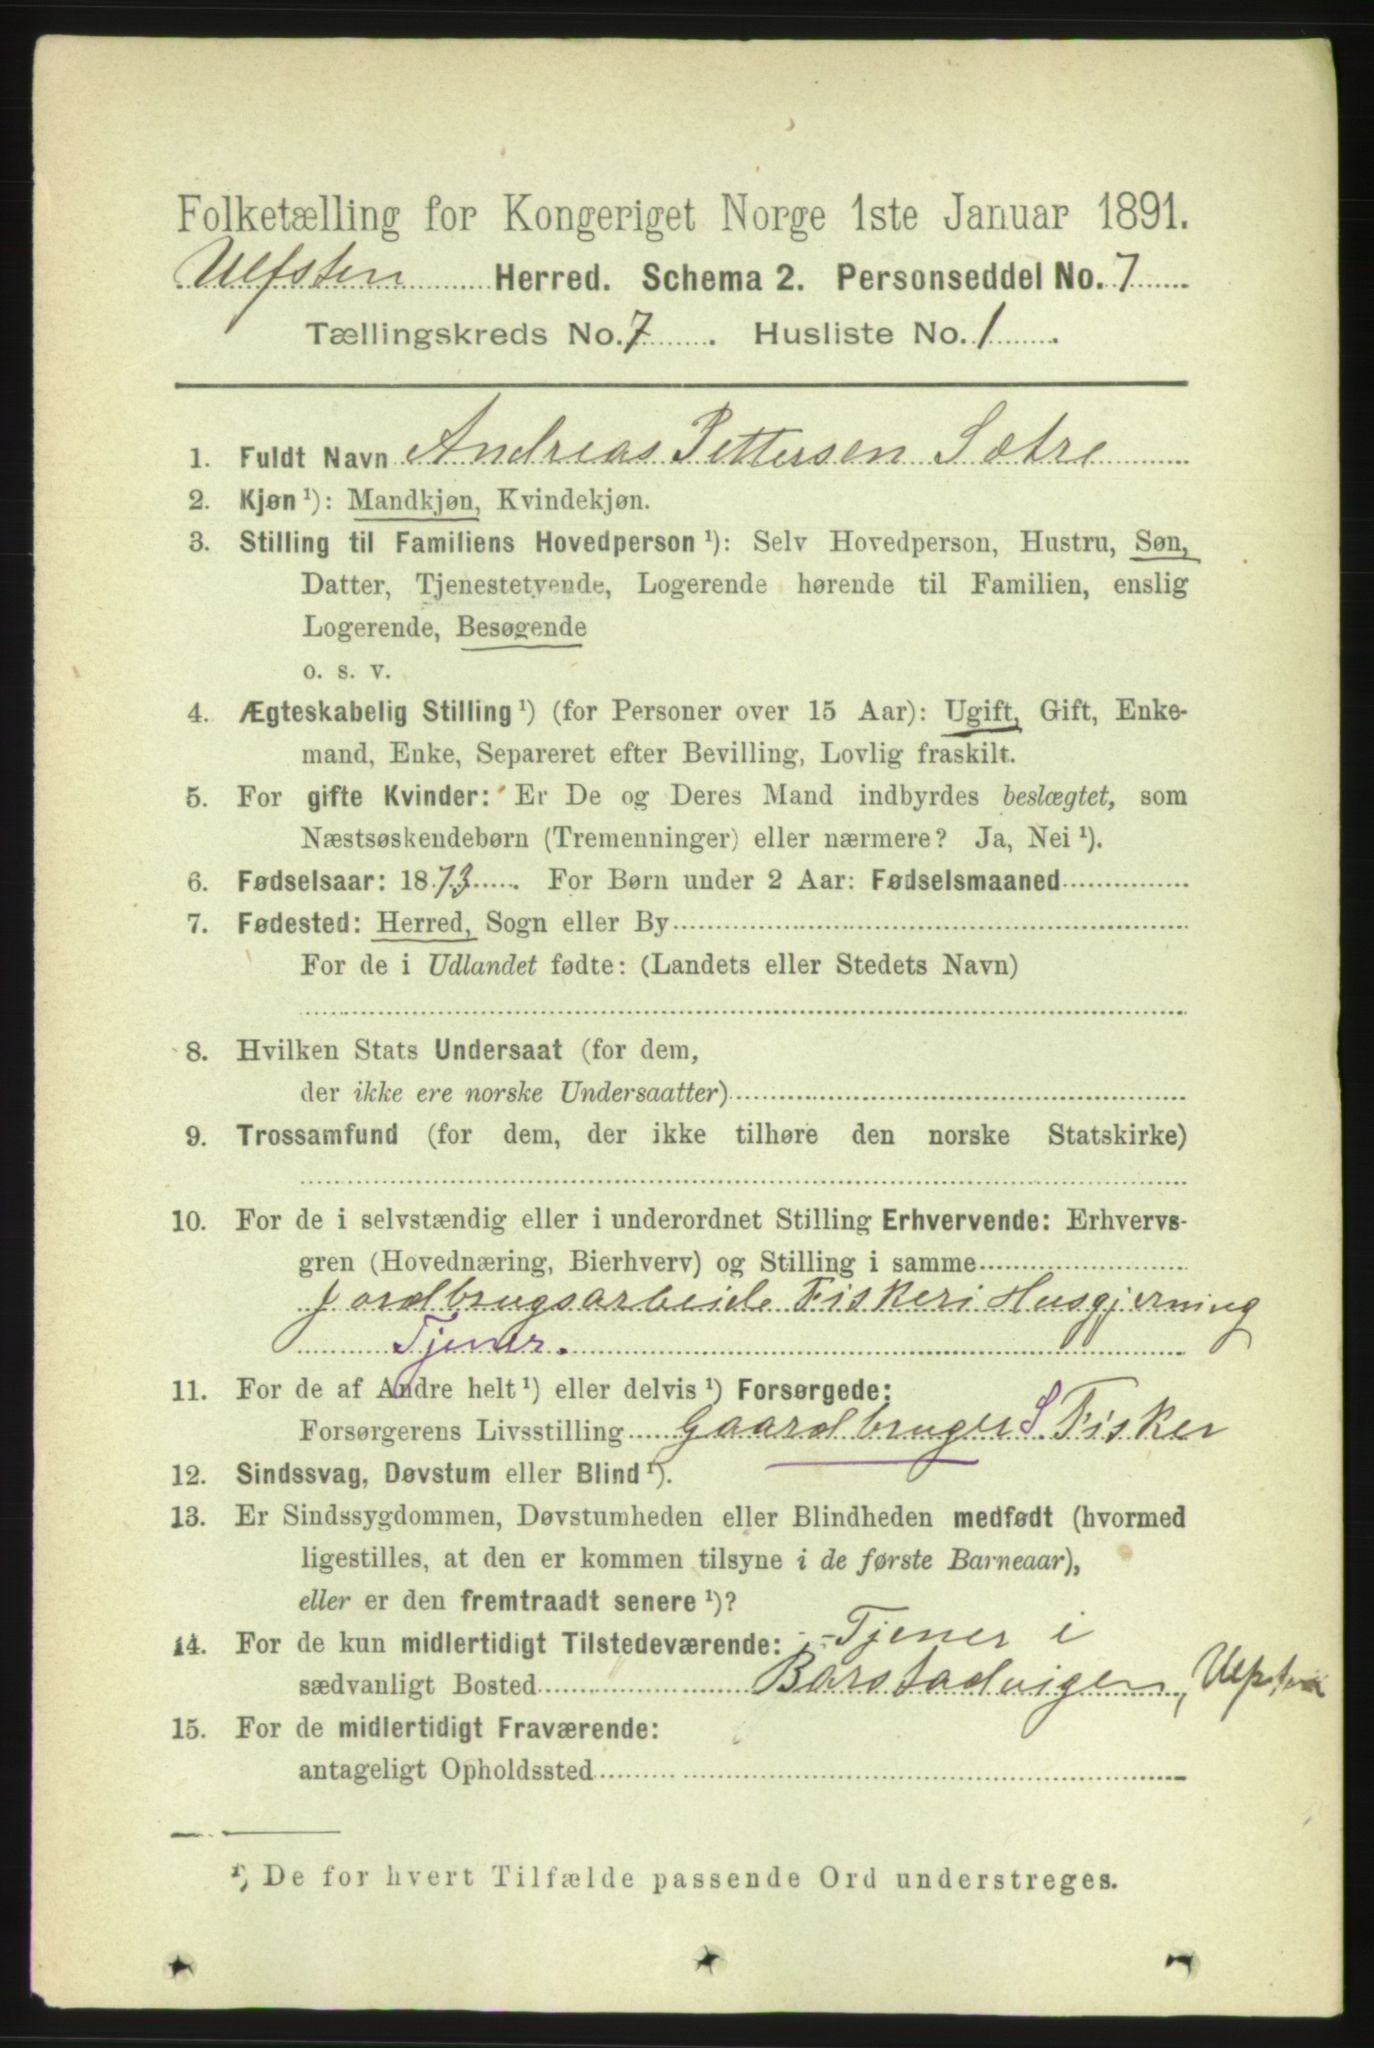 Folketælling for Kongeriget Norge 1ste Januar 1891.
Ulfsten Herred. Schema 2. Personseddel No. 7
Tællingskreds No. 7. Husliste No. 1.
1. Fuldt Navn Andreas Pettersen Sætre
2. Kjøn ¹): Mandkjøn, Kvindekjøn.
3. Stilling til Familiens Hovedperson ¹): Selv Hovedperson, Hustru, Søn,
Datter, Tjenestetyende, Logerende hørende til Familien, enslig
Logerende, Besøgende
o. s. v.
4. Ægteskabelig Stilling ¹) (for Personer over 15 Aar): Ugift, Gift, Enke-
mand, Enke, Separeret efter Bevilling, Lovlig fraskilt.
5. For gifte Kvinder: Er De og Deres Mand indbyrdes beslægtet, som
Næstsøskendebørn (Tremenninger) eller nærmere? Ja, Nei ¹).
6. Fødselsaar: 1873. For Børn under 2 Aar: Fødselsmaaned
7. Fødested: Herred, Sogn eller By
For de i Udlandet fødte: (Landets eller Stedets Navn)
8. Hvilken Stats Undersaat (for dem,
der ikke ere norske Undersaatter)
9. Trossamfund (for dem, der ikke tilhøre den norske Statskirke)
10. For de i selvstændig eller i underordnet Stilling Erhvervende: Erhvervs-
gren (Hovednæring, Bierhverv) og Stilling i samme
Jordbrugsarbeide Fiskeri Husgjerning
Tjener.
11. For de af Andre helt ¹) eller delvis ¹) Forsørgede:
Forsørgerens Livsstilling Gaardbruger S. Fisker
12. Sindssvag, Døvstum eller Blind ¹).
13. Er Sindssygdommen, Døvstumheden eller Blindheden medfødt (hvormed
ligestilles, at den er kommen tilsyne i de første Barneaar),
eller er den fremtraadt senere ¹)?
14. For de kun midlertidigt Tilstedeværende: Tjener i
sædvanligt Bosted Barstadvigen, Ulfsten
15. For de midlertidigt Fraværende:
antageligt Opholdssted
¹) De for hvert Tilfælde passende Ord understreges.